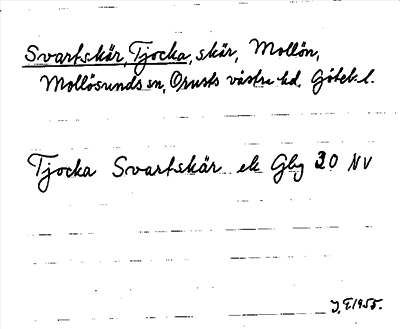 Svartskär, Tjocka, skär, Mollön,
Mollösunds sn, Orusts västra hd. Göteb. l.
Tjocka Svartskär ek Gbg 30 NV
J.E. 1955.